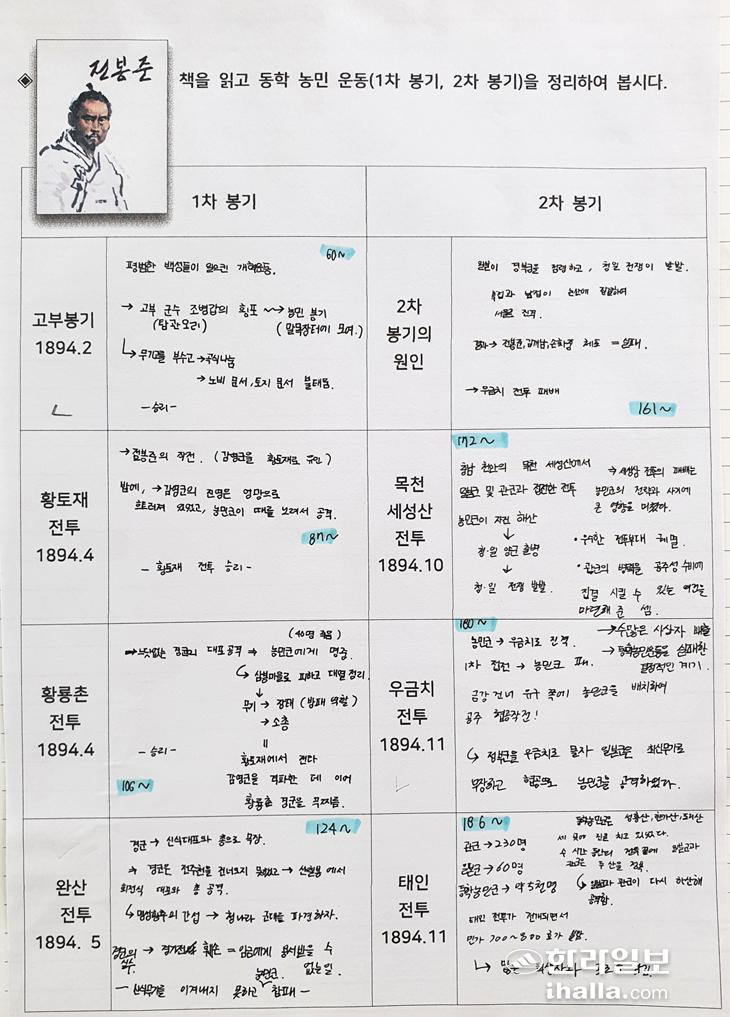 전봉준
◈ 책을 읽고 동학 농민 운동(1차 봉기, 2차 봉기)을 정리하여 봅시다.
1차 봉기
2차 봉기
고부봉기
1894.2
60~
평범한 백성들이 일으킨 개혁운동.
→ 고부 군수 조병갑의 횡포 ~→ 농민 봉기
(탐관오리) (말목장터에 모여.)
↳ 무기고를 부수고 → 곡식나눔
→ 노비 문서, 토지 문서 불태움.
- 승리 -
2차
봉기의
원인
일본이 경복궁을 점령하고, 청일 전쟁이 발발.
북접과 남접이 논산에 집결하여
서울로 진격.
결과 → 전봉준, 김개남, 손화중 체포 = 실패.
→ 우금치 전투 패배
161~
황토재
전투
1894.4
→ 전봉준의 작전. (감영군을 황토재로 유인)
밤에, → 감영군의 진영은 엉망으로
흐트러져 있었고, 농민군이 때를 노려서 공격.
87~
- 황토재 전투 승리 -
목천
세성산
전투
1894.10
172~
충남 천안의 목천 세성산에서
일본군 및 관군과 접전한 전투
농민군이 자진 해산
↓
청·일 양국 출병
↓
청·일 전쟁 발발.
→ 세성산 전투의 패배는
농민군의 전략과 사기에
큰 영향을 미쳤다.
• 우수한 전투부대 궤멸.
• 관군의 병력을 공주성 수비에
집결 시킬 수 있는 여건을
마련해 준 셈.
황룡촌
전투
1894.4
(40명 죽음)
→ 느닷없는 경군의 대포공격 ⇒ 농민군에게 명중.
↳ 삼봉마을로 피하고 대열 정리.
↓
무기 → 장태 (방패 역할)
→ 소총
- 승리 -
황토재에서 전라
감영군을 격파한 데 이어
황룡촌 경군을 무찌름.
106~
우금치
전투
1894.11
180~
농민군 → 우금치로 진격.
1차 접전 → 농민군 패.
→ 수많은 사상자 배출
→ 동학농민운동을 실패한
결정적인 계기.
금강 건너 유구 쪽에 농민군을 배치하여
공주 협공작전!
↳ 정부군을 우금치로 몰자 일본군은 최신무기로
무장하고 농민군을 공격하였다.
완산
전투
1894. 5
124~
경군 → 신식대포와 총으로 무장.
→ 경군은 전주천을 건너오지 못하였고 → 산꼭대기에서
회전식 대포와 총 공격.
↳ 명성황후의 간섭 → 청나라 군대를 파견하자.
경군의 실수 → 경기전 훼손 = 임금에게 용서받을 수
없는 일.
- 신식무기를 이겨내지 못하고 농민군 참패 -
태인
전투
1894.11
186~
관군 → 230명
일본군 → 60명
동학농민군 → 약 5천명
동학농민군은 성황산, 한가산, 도리산
세 곳에 진을 치고 있었다.
수 시간 동안의 전투 끝에 일본군과
관군은 두 산을 점령.
↳ 일본군과 관군이 다시 하산해
공격함.
태인 전투가 전개되면서
민가 700~800 호가 불탐.
한라일보
ihalla.com